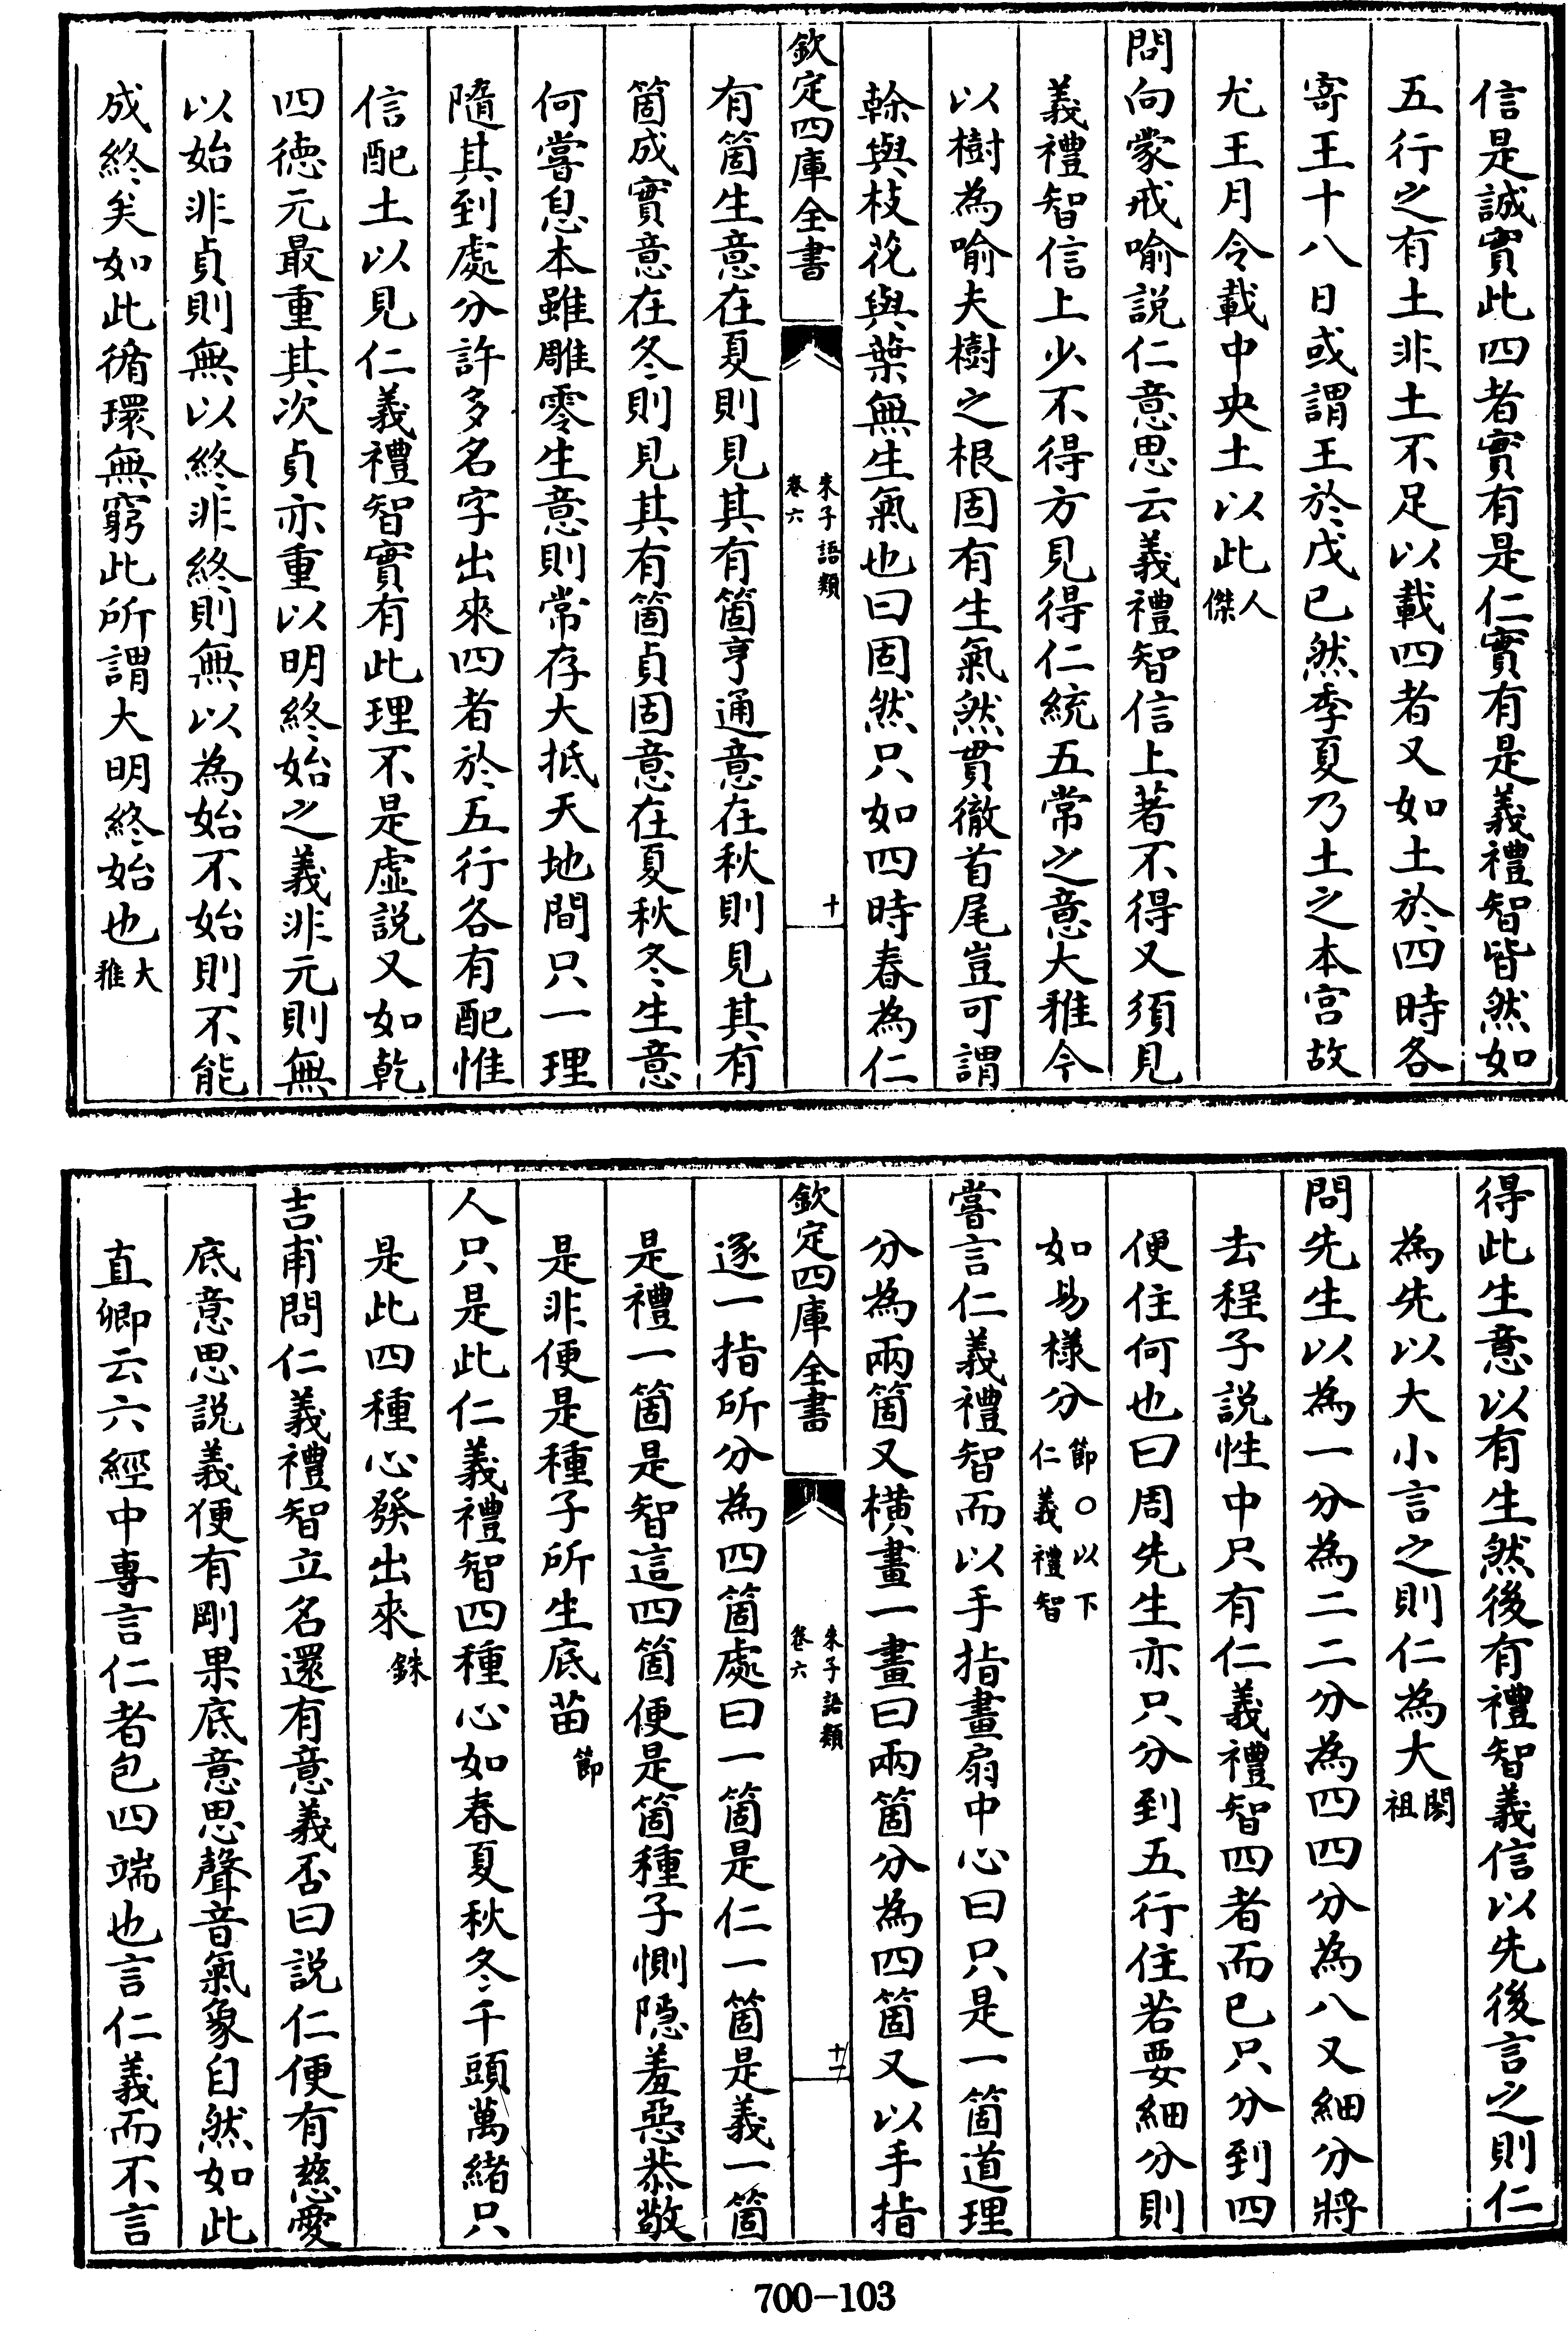 信是誠實此四者實有是仁實有是義禮智皆然如
五行之有土非土不足以載四者又如土於四時各
寄王十八日或謂王於戊已然季夏乃土之本宫故
尤王月令載中央土以此人傑
問向蒙戒喻説仁意思云義禮智信上著不得又須見
義禮智信上少不得方見得仁統五常之意大雅今
以樹為喻夫樹之根固有生氣然貫徹首尾豈可謂
榦與枝花與葉無生氣也曰固然只如四時春為仁
欽定四庫全書
朱子語類
卷六
十
有箇生意在夏則見其有箇亨通意在秋則見其有
箇成實意在冬則見其有箇貞固意在夏秋冬生意
何嘗息本雖雕零生意則常存大抵天地間只一理
隨其到處分許多名字出來四者於五行各有配惟
信配土以見仁義禮智實有此理不是虚説又如乾
四徳元最重其次貞亦重以明終始之義非元則無
以始非貞則無以終非終則無以為始不始則不能
成終矣如此循環無窮此所謂大明終始也大雅
得此生意以有生然後有禮智義信以先後言之則仁
為先以大小言之則仁為大閎祖
問先生以為一分為二二分為四四分為八又細分將
去程子説性中只有仁義禮智四者而已只分到四
便住何也曰周先生亦只分到五行住若要細分則
如易様分節○以下仁義禮智
嘗言仁義禮智而以手指畫扇中心曰只是一箇道理
分為兩箇又横畫一畫曰兩箇分為四箇又以手指
欽定四庫全書
朱子語類
卷六
十一
逐一指所分為四箇處曰一箇是仁一箇是義一箇
是禮一箇是智這四箇便是箇種子惻隱羞惡恭敬
是非便是種子所生底苗節
人只是此仁義禮智四種心如春夏秋冬千頭萬緒只
是此四種心發出來銖
吉甫問仁義禮智立名還有意義否曰説仁便有慈愛
底意思説義便有剛果底意思聲音氣象自然如此
直卿云六經中專言仁者包四端也言仁義而不言
700-103